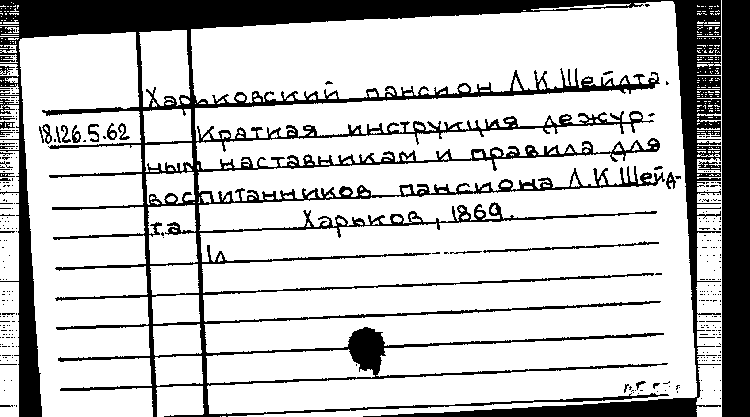 Харьковский пансион Л.К.Шейдта.
18.126.5.62 Краткая инструкция дежур-
ным наставникам и правила для
воспитанников пансиона Л.К.Шейд-
та. Харьков, 1869.
1л